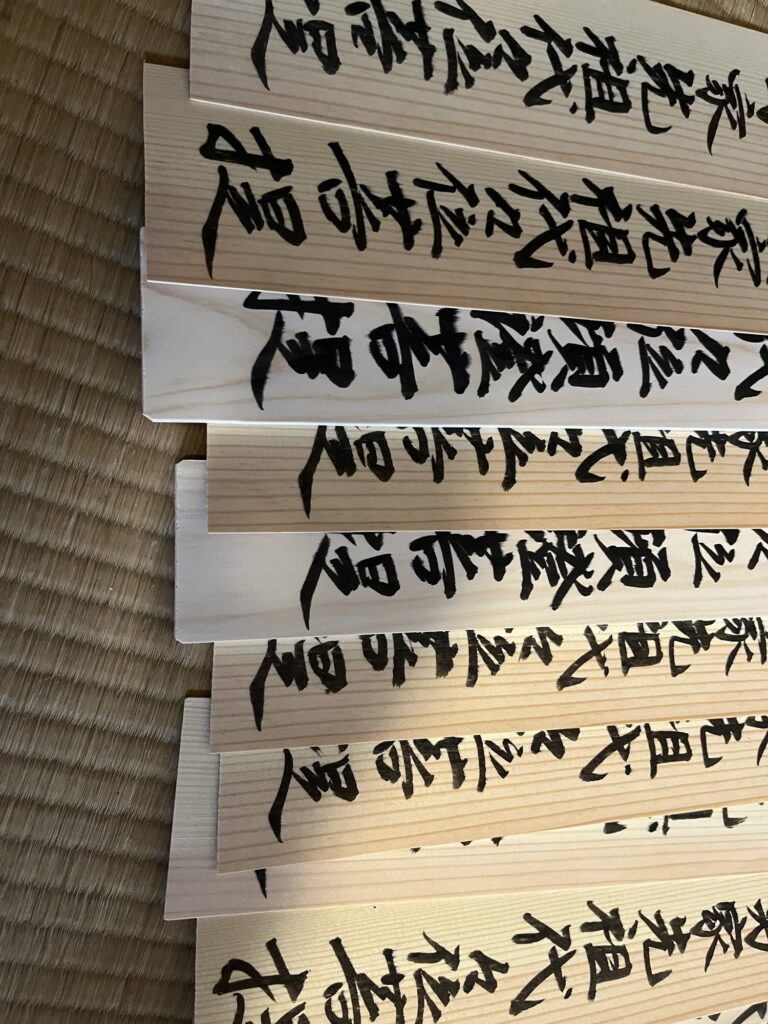 家先祖代々位菩提
先祖代々位菩提
家先祖代々位菩提
位頓證菩提
家先祖代々位菩提
代々位頓證菩提
家先祖代々位菩提
家先祖代々位菩提